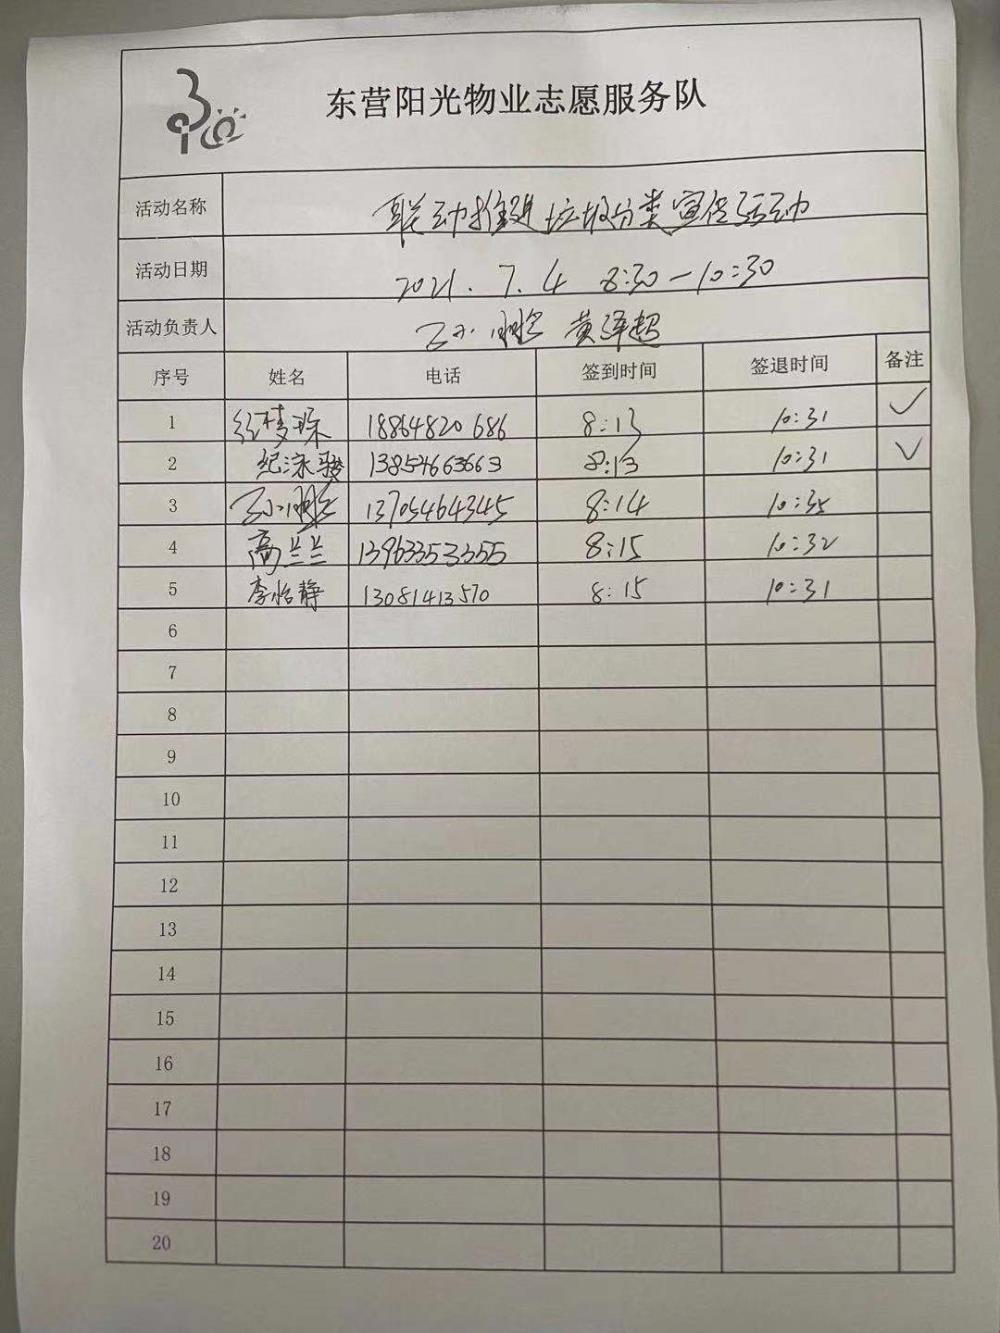 东营阳光物业志愿服务队
活动名称 联动推进垃圾分类宣传活动
活动日期 2021.7.4 8:30-10:30
活动负责人 王小鹏 黄泽超
序号 姓名 电话 签到时间 签退时间 备注
1 纪梦琛 18864820686 8:13 10:31 ✓
2 纪泳骏 13854663663 8:13 10:31 ✓
3 王小鹏 13705464345 8:14 10:35
4 高兰兰 13963353355 8:15 10:32
5 李怡静 13081413570 8:15 10:31
6
7
8
9
10
11
12
13
14
15
16
17
18
19
20